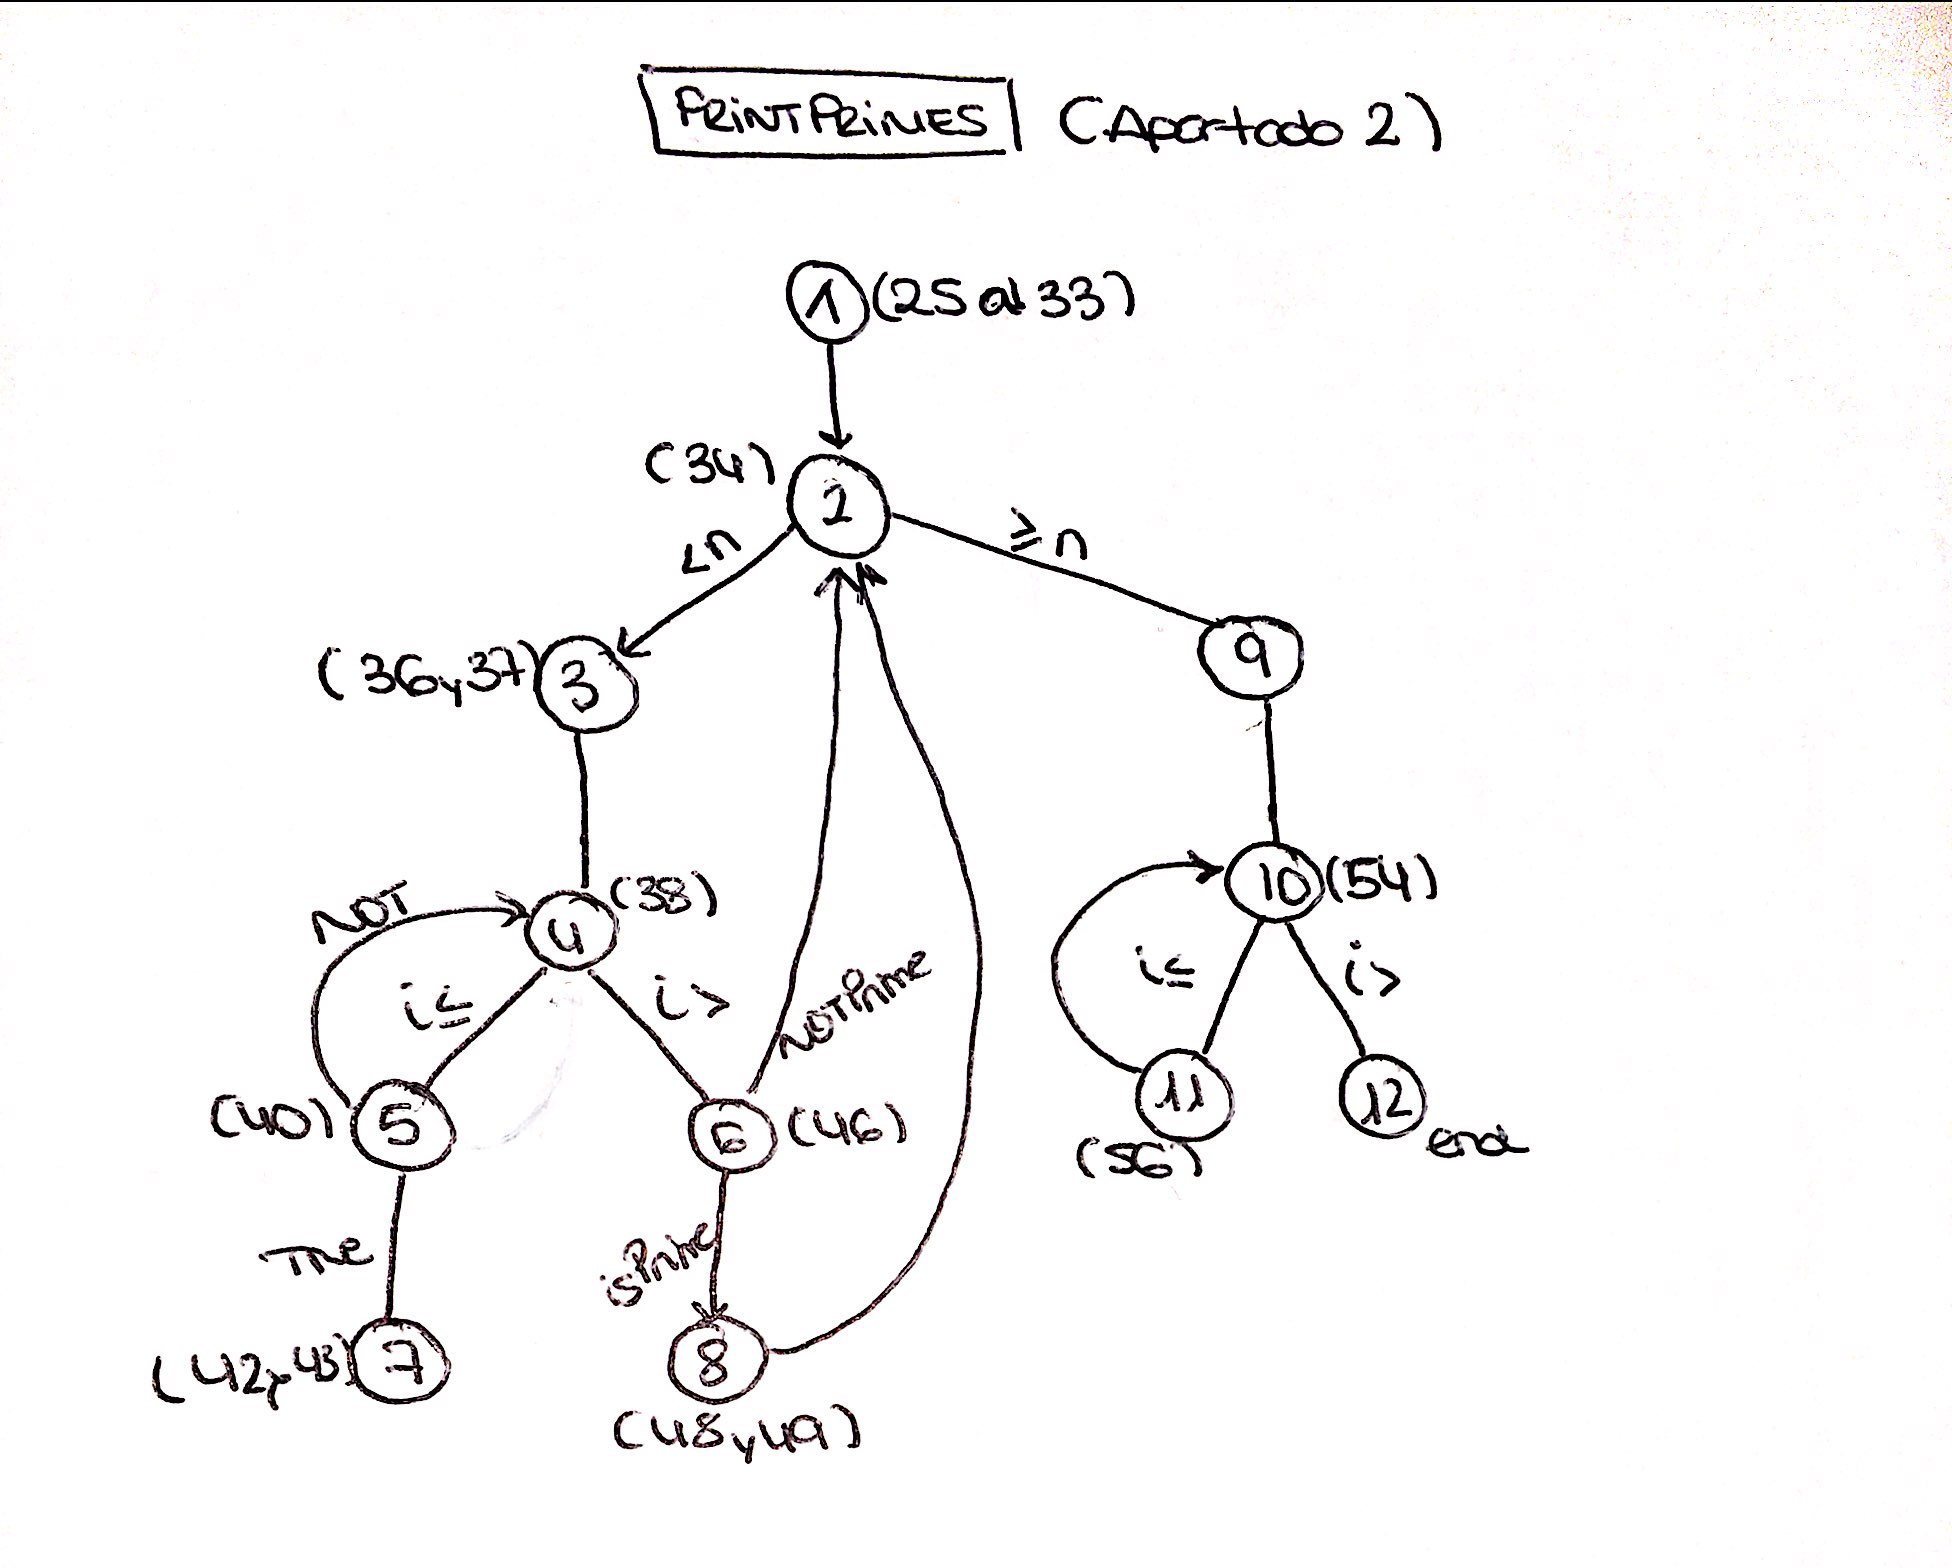 PRINTPRIMES (Apartado 2)
1 (25 al 33)
(34)
2
<n
≥n
(36y37) 3
9
4 (38)
NOT
i≤
i>
NOTPrime
10 (54)
i≤
i>
(40) 5
6 (46)
11
(56)
12
end
True
isPrime
(42y43) 7
8
(48y49)